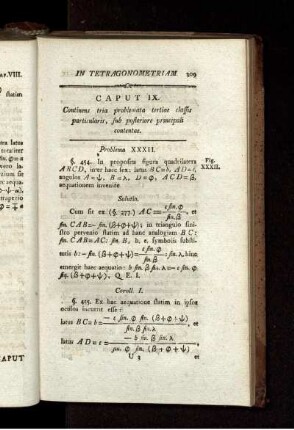 ar.VIII.
IN TETRAGONOMETRIAM 209
CAPUT IX.
Continens tria problemata tertiae classis
particularis, sub posteriore principali
contentae.
Problema XXXII.
§. 454. In proposita figura quadrilatera
Fig.
ABCD, inter haec sex: latus BC=b, AD=ε,
XXXII.
angulos A=ψ, B=λ, D=φ, ACD=β,
aequationem invenire.
Solutio.
Cum sit ex (§. 277.) AC=—ε sin. φ / sin. β, et
sin. CAB=—sin. (β+φ+ψ); in triangulo sini-
stro pervenio statim ad hanc analogiam BC:
sin. CAB=AC: sin. B, h. e. symbolis substi-
tutis b:— sin. (β+φ+ψ)=ε sin. φ / sin. β : sin. λ, hinc
emergit haec aequatio: b sin. β sin. λ=—ε sin. φ.
sin. (β+φ+ψ). Q. E. I.
Coroll. I.
§. 455. Ex hac aequatione statim in ipsos
oculos incurrit esse:
latus BC=b=— ε sin. φ sin. (β+φ+ψ) / sin. β sin. λ, et
latus AD=ε=— b sin. β sin. λ / sin. φ sin. (β+φ+ψ)
U 3 et
CAPUT